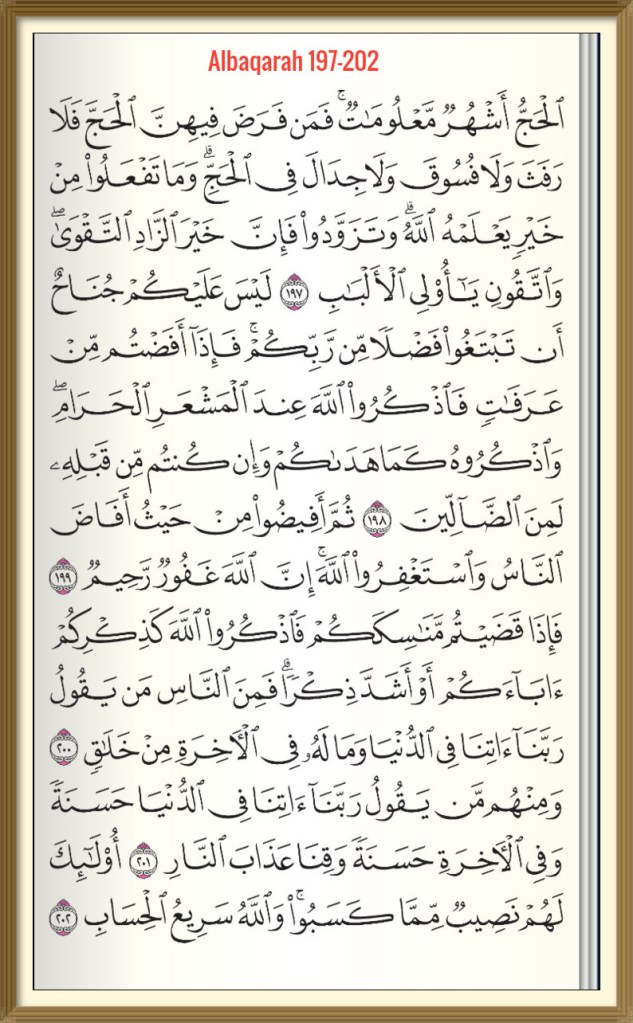 Albaqarah 197-202
ٱلْحَجُّ أَشْهُرٌ مَّعْلُومَـٰتٌ ۚ فَمَن فَرَضَ فِيهِنَّ ٱلْحَجَّ فَلَا
رَفَثَ وَلَا فُسُوقَ وَلَا جِدَالَ فِى ٱلْحَجِّ ۗ وَمَا تَفْعَلُوا۟ مِنْ
خَيْرٍ يَعْلَمْهُ ٱللَّهُ ۗ وَتَزَوَّدُوا۟ فَإِنَّ خَيْرَ ٱلزَّادِ ٱلتَّقْوَىٰ ۖ
وَٱتَّقُونِ يَـٰٓأُو۟لِى ٱلْأَلْبَـٰبِ ١٩٧ لَيْسَ عَلَيْكُمْ جُنَاحٌ
أَن تَبْتَغُوا۟ فَضْلًا مِّن رَّبِّكُمْ ۚ فَإِذَآ أَفَضْتُم مِّنْ
عَرَفَـٰتٍ فَٱذْكُرُوا۟ ٱللَّهَ عِندَ ٱلْمَشْعَرِ ٱلْحَرَامِ ۖ
وَٱذْكُرُوهُ كَمَا هَدَىٰكُمْ وَإِن كُنتُم مِّن قَبْلِهِۦ
لَمِنَ ٱلضَّآلِّينَ ١٩٨ ثُمَّ أَفِيضُوا۟ مِنْ حَيْثُ أَفَاضَ
ٱلنَّاسُ وَٱسْتَغْفِرُوا۟ ٱللَّهَ ۚ إِنَّ ٱللَّهَ غَفُورٌ رَّحِيمٌ ١٩٩
فَإِذَا قَضَيْتُم مَّنَـٰسِكَكُمْ فَٱذْكُرُوا۟ ٱللَّهَ كَذِكْرِكُمْ
ءَابَآءَكُمْ أَوْ أَشَدَّ ذِكْرًا ۗ فَمِنَ ٱلنَّاسِ مَن يَقُولُ
رَبَّنَآ ءَاتِنَا فِى ٱلدُّنْيَا وَمَا لَهُۥ فِى ٱلْـَٔاخِرَةِ مِنْ خَلَـٰقٍ ٢٠٠
وَمِنْهُم مَّن يَقُولُ رَبَّنَآ ءَاتِنَا فِى ٱلدُّنْيَا حَسَنَةً
وَفِى ٱلْـَٔاخِرَةِ حَسَنَةً وَقِنَا عَذَابَ ٱلنَّارِ ٢٠١ أُو۟لَـٰٓئِكَ
لَهُمْ نَصِيبٌ مِّمَّا كَسَبُوا۟ ۚ وَٱللَّهُ سَرِيعُ ٱلْحِسَابِ ٢٠٢